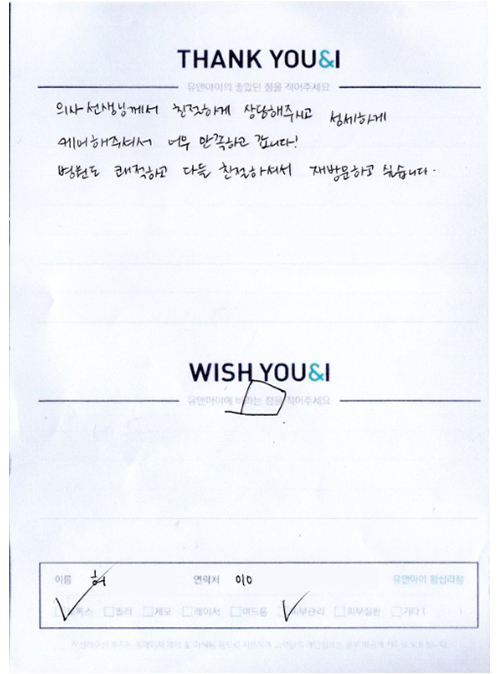 THANK YOU&I
유앤아이의 좋았던 점을 적어주세요
의사선생님께서 친절하게 상담해주시고 섬세하게
케어해주셔서 너무 만족하고 갑니다!
병원도 쾌적하고 다들 친절하셔서 재방문하고 싶습니다.
WISH YOU&I
유앤아이에 바라는 점을 적어주세요
이름 허 연락처 010 유앤아이 왕십리점
보톡스 필러 제모 레이저 여드름 피부관리 피부질환 기타 ( )